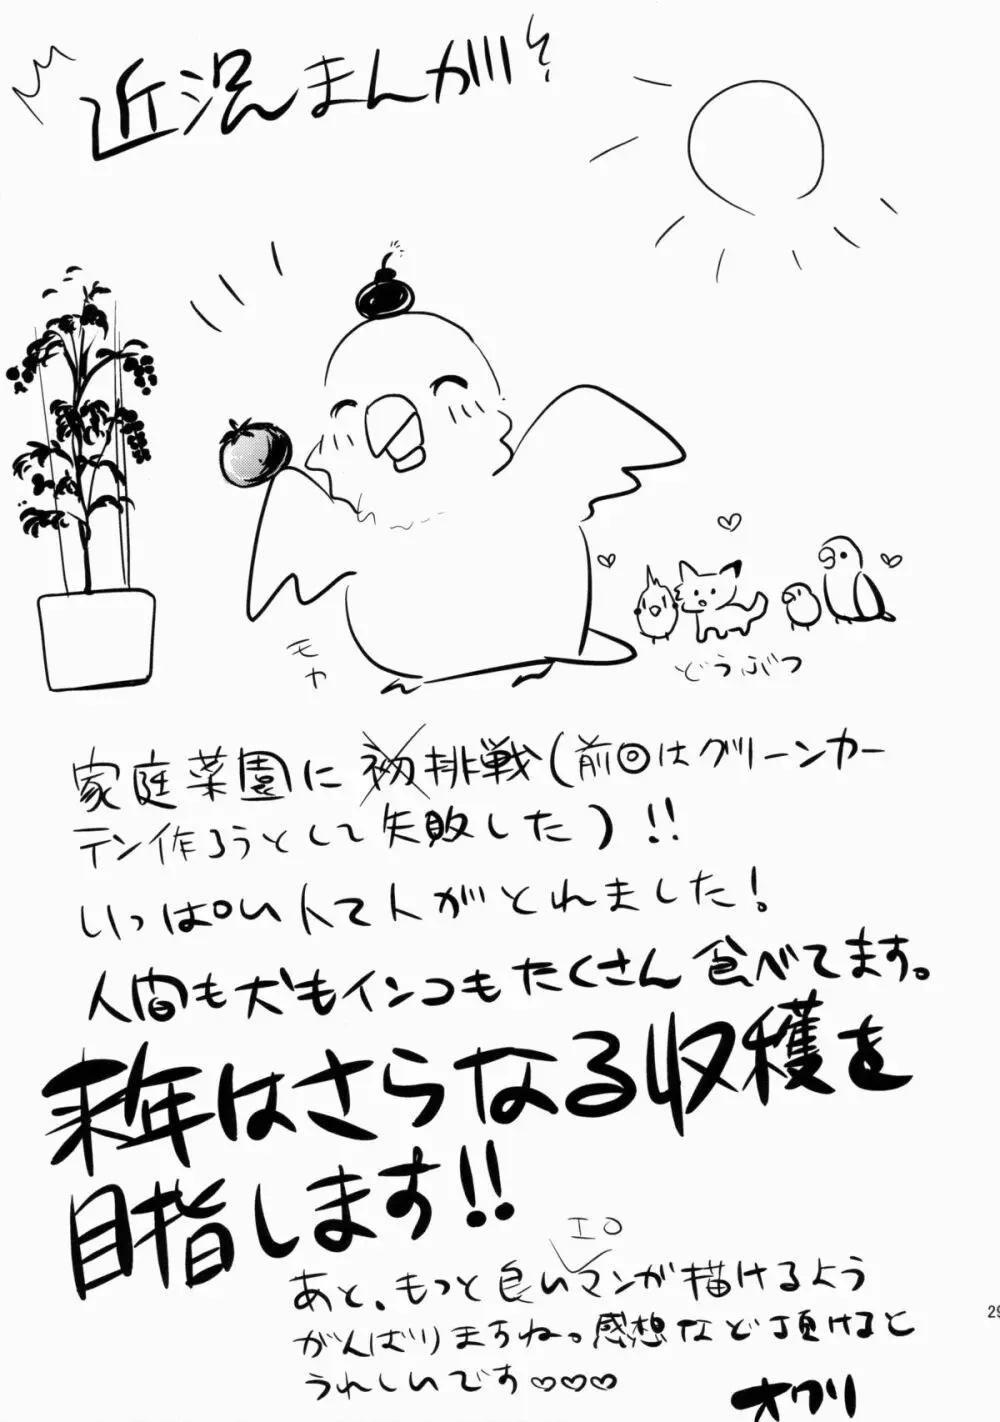 近況まんが
モヤ
どうぶつ
家庭菜園に初挑戦(前回はグリーンカー
テン作ろうとして失敗した)!!
いっぱいトマトがとれました!
人間も犬もインコもたくさん食べてます。
来年はさらなる収穫を
目指します!!
エロ
あと、もっと良いマンガ描けるよう
がんばりますね。感想など頂けると
うれしいです♡♡♡
オワリ
29